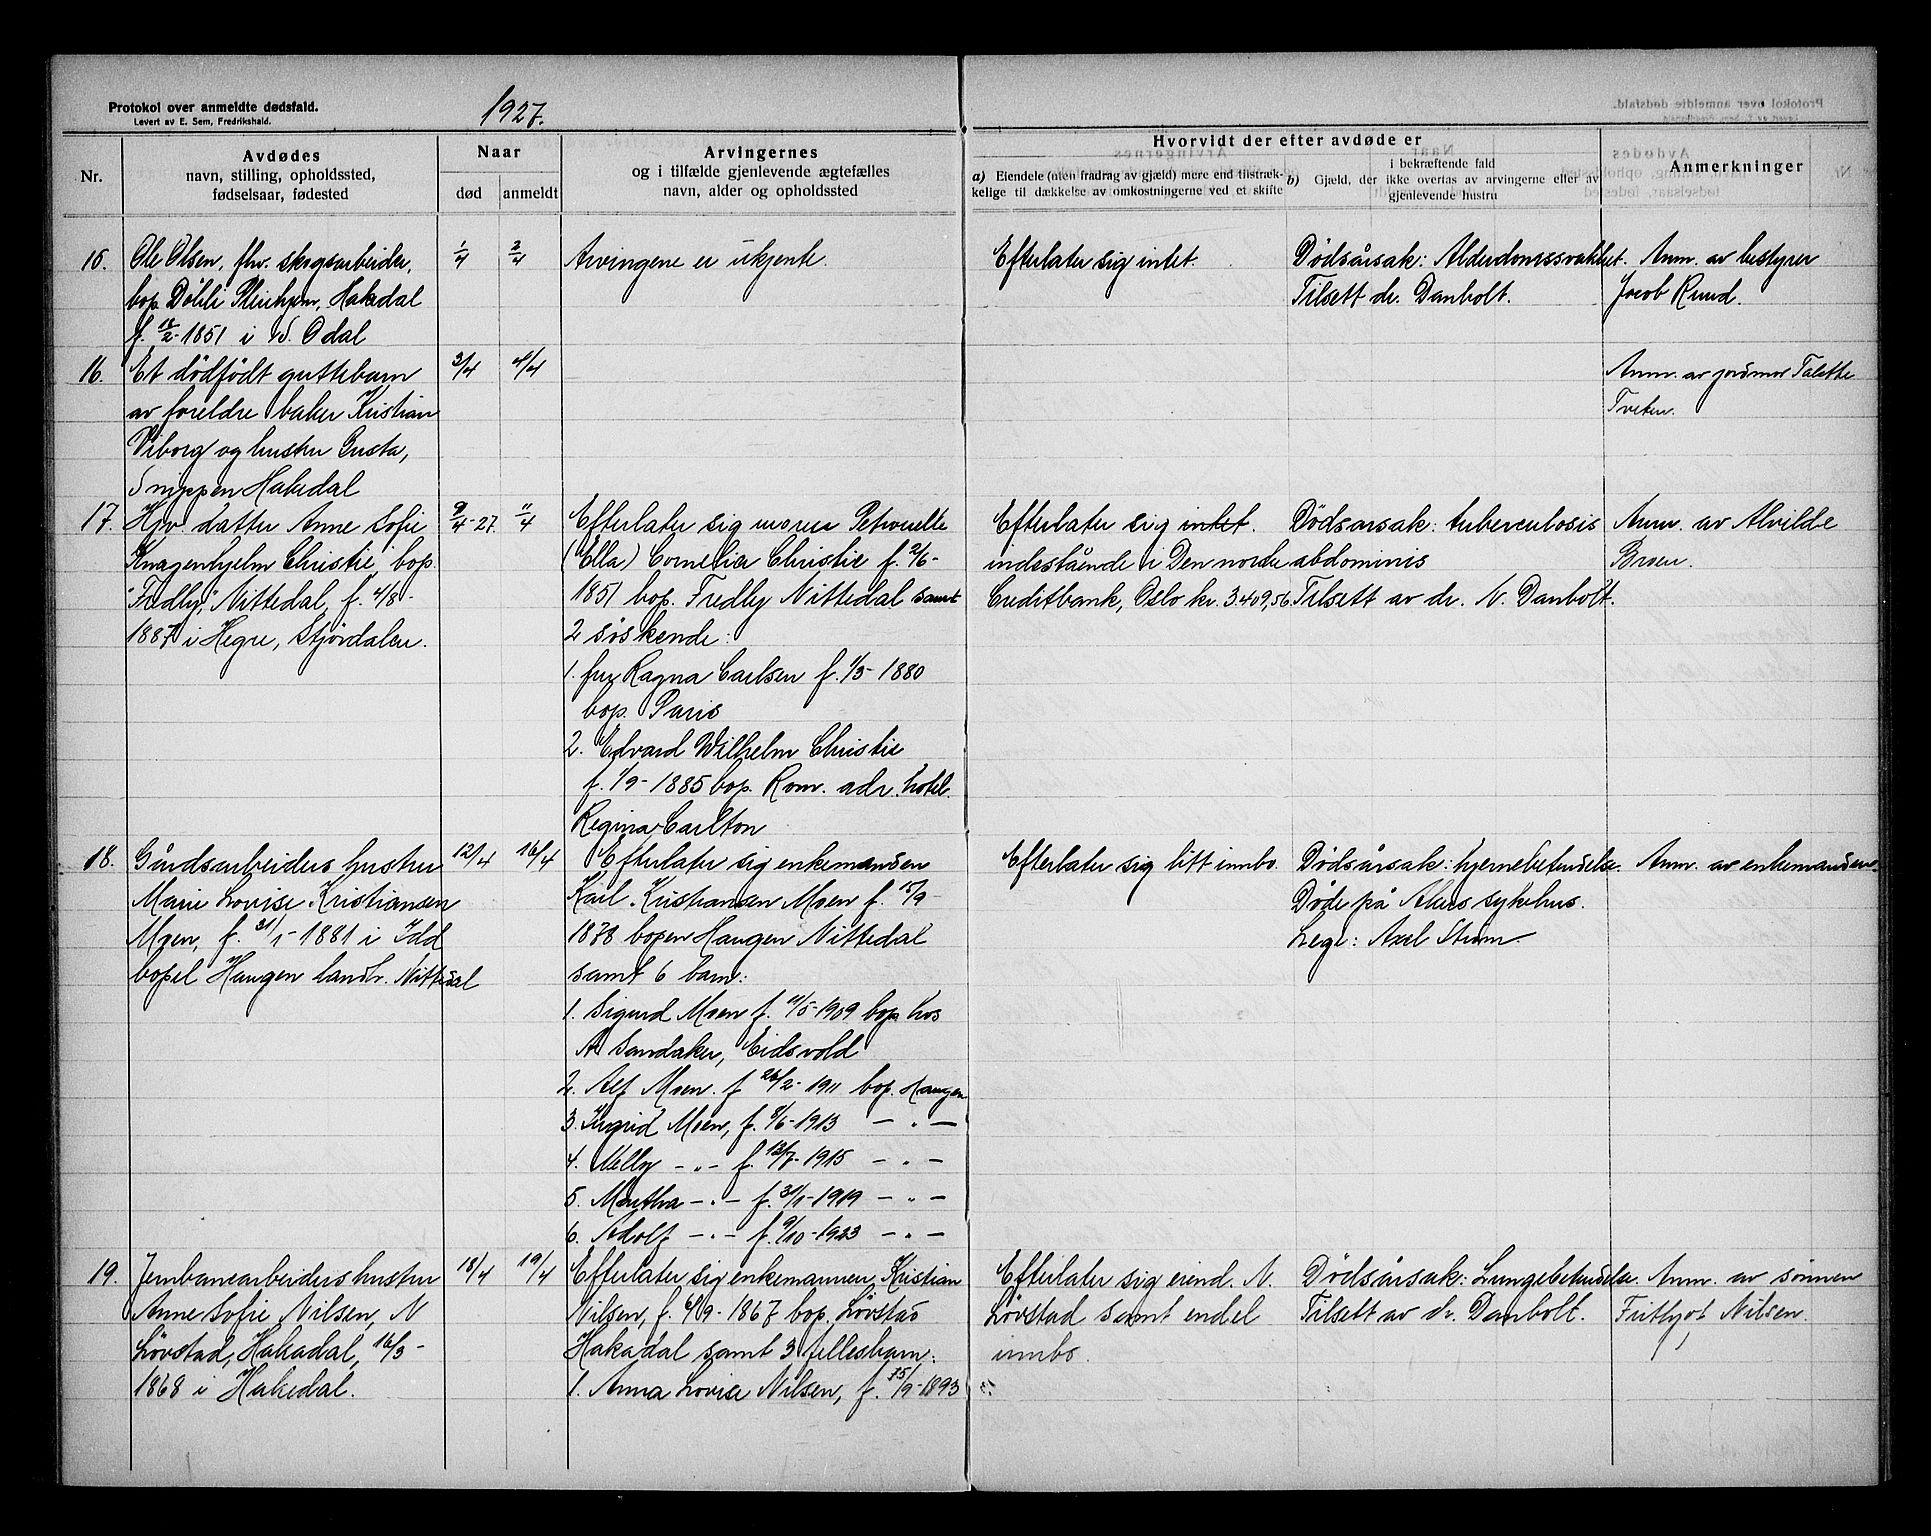 Protokol over anmeldte dødsfald.
Levert av E. Sem, Fredrikshald.
1927.
Nr.
Avdødes
navn, stilling, opholdssted,
fødselsaar, fødested
Naar
død
anmeldt
Arvingernes
og i tilfælde gjenlevende ægtefælles
navn, alder og opholdssted
Hvorvidt der efter avdøde er
a) Eiendele (uten fradrag av gjæld) mere end tilstræk-
kelige til dækkelse av omkostningerne ved et skifte
i bekræftende fald
b) Gjæld, der ikke overtas av arvingerne eller av
gjenlevende hustru
Anmerkninger
15.
Ole Olsen, fhv. skogsarbeider,
bop. Döhli Pleiehjem, Hakadal
f. 12/2-1851 i S. Odal
1/4
2/4
Arvingene er ukjente.
Efterlater sig intet.
Dødsårsak: Alderdomssvakhet.
Tilsett dr. Danbolt.
Anm. av bestyrer
Jacob Ruud.
16.
Et dödfödt guttebarn
av foreldre baker Kristian
Viborg og hustru Gusta,
Snippen Hakedal
3/4
4/4
Anm. av jordmor
Tveten.
17.
Hjv. datter Anne Sofie
Knagenhjelm Christie, bop.
"Fredly," Nittedal, f. 4/8-
1887 i Hegre, Stjördalen.
9/4-27.
11/4
Efterlater sig moren Petronelle
(Ella) Cornelia Christie f. 2/6-
1851 bop. Fredly Nittedal samt
2 söskende:
1. fru Ragna Carlsen f. 1/3-1880
bop. Paris
2. Edvard Wilhelm Christie
f. 1/9-1885 bop. Rom. adr. hotel.
Regina Carlton
Efterlater sig intet.
indestående i Den norske
Creditbank, Oslo kr. 3.409,56.
Dødsårsak: tuberculosis
abdominis
Tilsett av dr. N. Danbolt.
Anm. av Alvilde
Broen.
18.
Gårdsarbeiders hustru
Marie Lovise Kristiansen
Moen, f. 31/1-1881 i Idd
bopel Haugen landbr. Nittedal
12/4
16/4
Efterlater sig enkemansen
Karl Kristiansen Moen f. 15/9-
1878 bopen Haugen Nittedal
samt 6 barn:
1. Sigurd Moen f. 11/5-1909 bop. hos
A Sandaker, Eidsvold
2. Alf Moen. f 26/2-1911 bop. Haugen
3. Ingrid Moen, f. 8/6-1913 — " —
4. Nelly — " — f. 13/7-1915 — " —
5. Martha — " — f. 31/1-1919 — " —
6. Adolf — " — f. 9/10-1923 — " —
Efterlater sig litt innbo.
Dødsårsak: hjernebetendelse.
Døde på Akers sykehus.
Lege: Axel Strøm.
Anm. av enkemanden.
19.
Jernbanearbeiders hustru
Anne Sofie Nilsen, N
Lövstad, Hakadal, 16/3-
1868 i Hakedal.
18/4
19/4
Efterlater sig enkemannen Kristian
Nilsen, f. 6/9-1867 bop. Lövstad
Hakadal samt 3 fellesbarn:
1. Anna Lovise Nilsen, f. 15/9-1893
Efterlater sig eiend. N.
Lövstad samt endel
innbo.
Dødsårsak: Lungebetendelse.
Tilsett av dr. Danbolt.
Anm. av sönnen
Frithjof Nilsen.